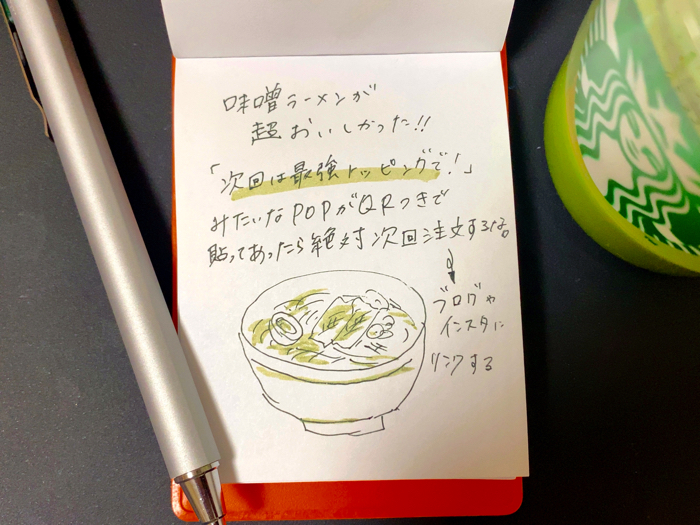 味噌ラーメンが
超おいしかった!!
「次回は最強トッピングで!」
みたいなPOPがQRつきで
貼ってあったら絶対次回注文するな。
ブログや
インスタに
リンクする